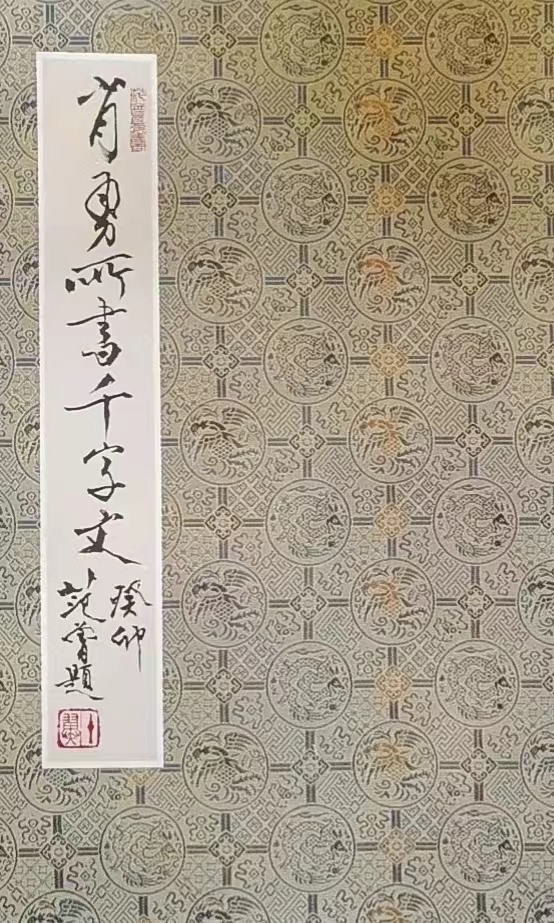 肖勇所书千字文
癸卯
范曾题